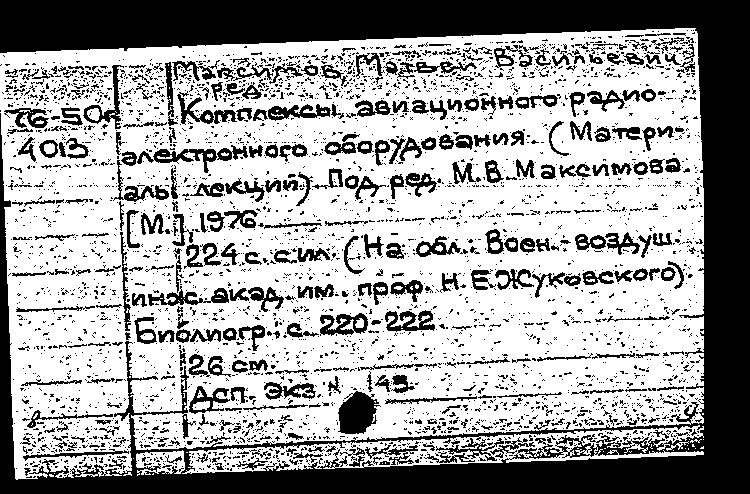 Максимов Матвей Васильевич
ред.
76-50к Комплексы авиационного радио-
4013 электронного оборудования. (Матери-
алы лекций) Под ред. М.В. Максимова.
[М.], 1976.
224 с. с ил. (На обл.: Воен.-воздуш.
инж. акад. им. проф. Н.Е.Жуковского).
Библиогр.: с. 220-222.
26 см.
Дсп. Экз. N 143.